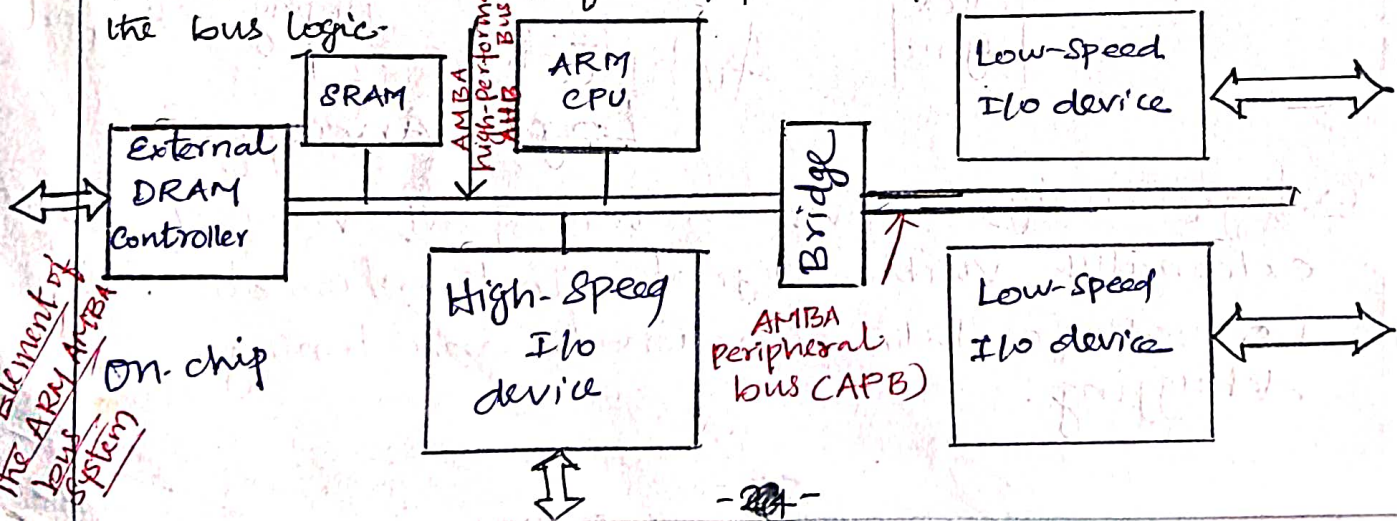 the bus logic.
SRAM
AMBA
high-perform
Bus
AHB
ARM
CPU
Low-Speed
I/o device
External
DRAM
Controller
Bridge
High-Speed
I/o
device
AMBA
peripheral
bus (APB)
Low-Speed
I/o device
On-chip
element of
the ARM AMBA
bus
system